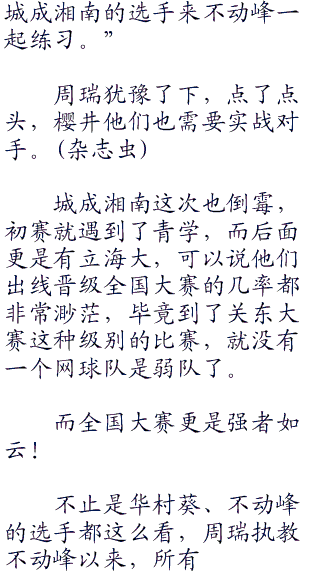 城成湘南的选手来不动峰一
起练习。”
周瑞犹豫了下，点了点
头，樱井他们也需要实战对
手。(杂志虫)
城成湘南这次也倒霉，
初赛就遇到了青学，而后面
更是有立海大，可以说他们
出线晋级全国大赛的几率都
非常渺茫，毕竟到了关东大
赛这种级别的比赛，就没有
一个网球队是弱队了。
而全国大赛更是强者如
云！
不止是华村葵、不动峰
的选手都这么看，周瑞执教
不动峰以来，所有